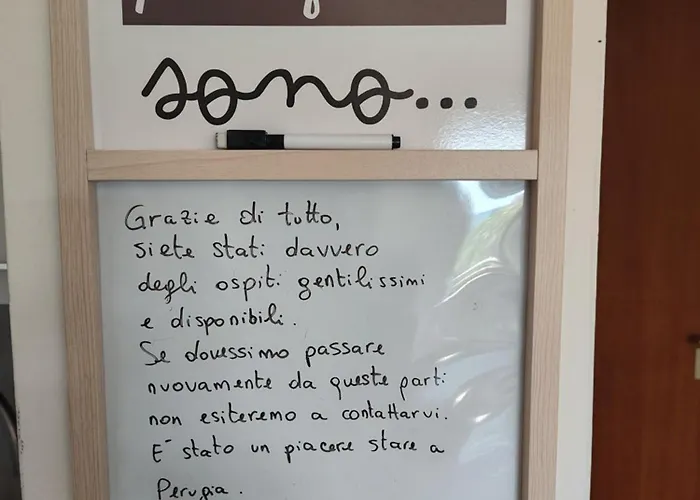 sono...
Grazie di tutto,
siete stati davvero
degli ospiti gentilissimi
e disponibili.
Se dovessimo passare
nuovamente da queste parti
non esiteremo a contattarvi.
E' stato un piacere stare a
Perugia.